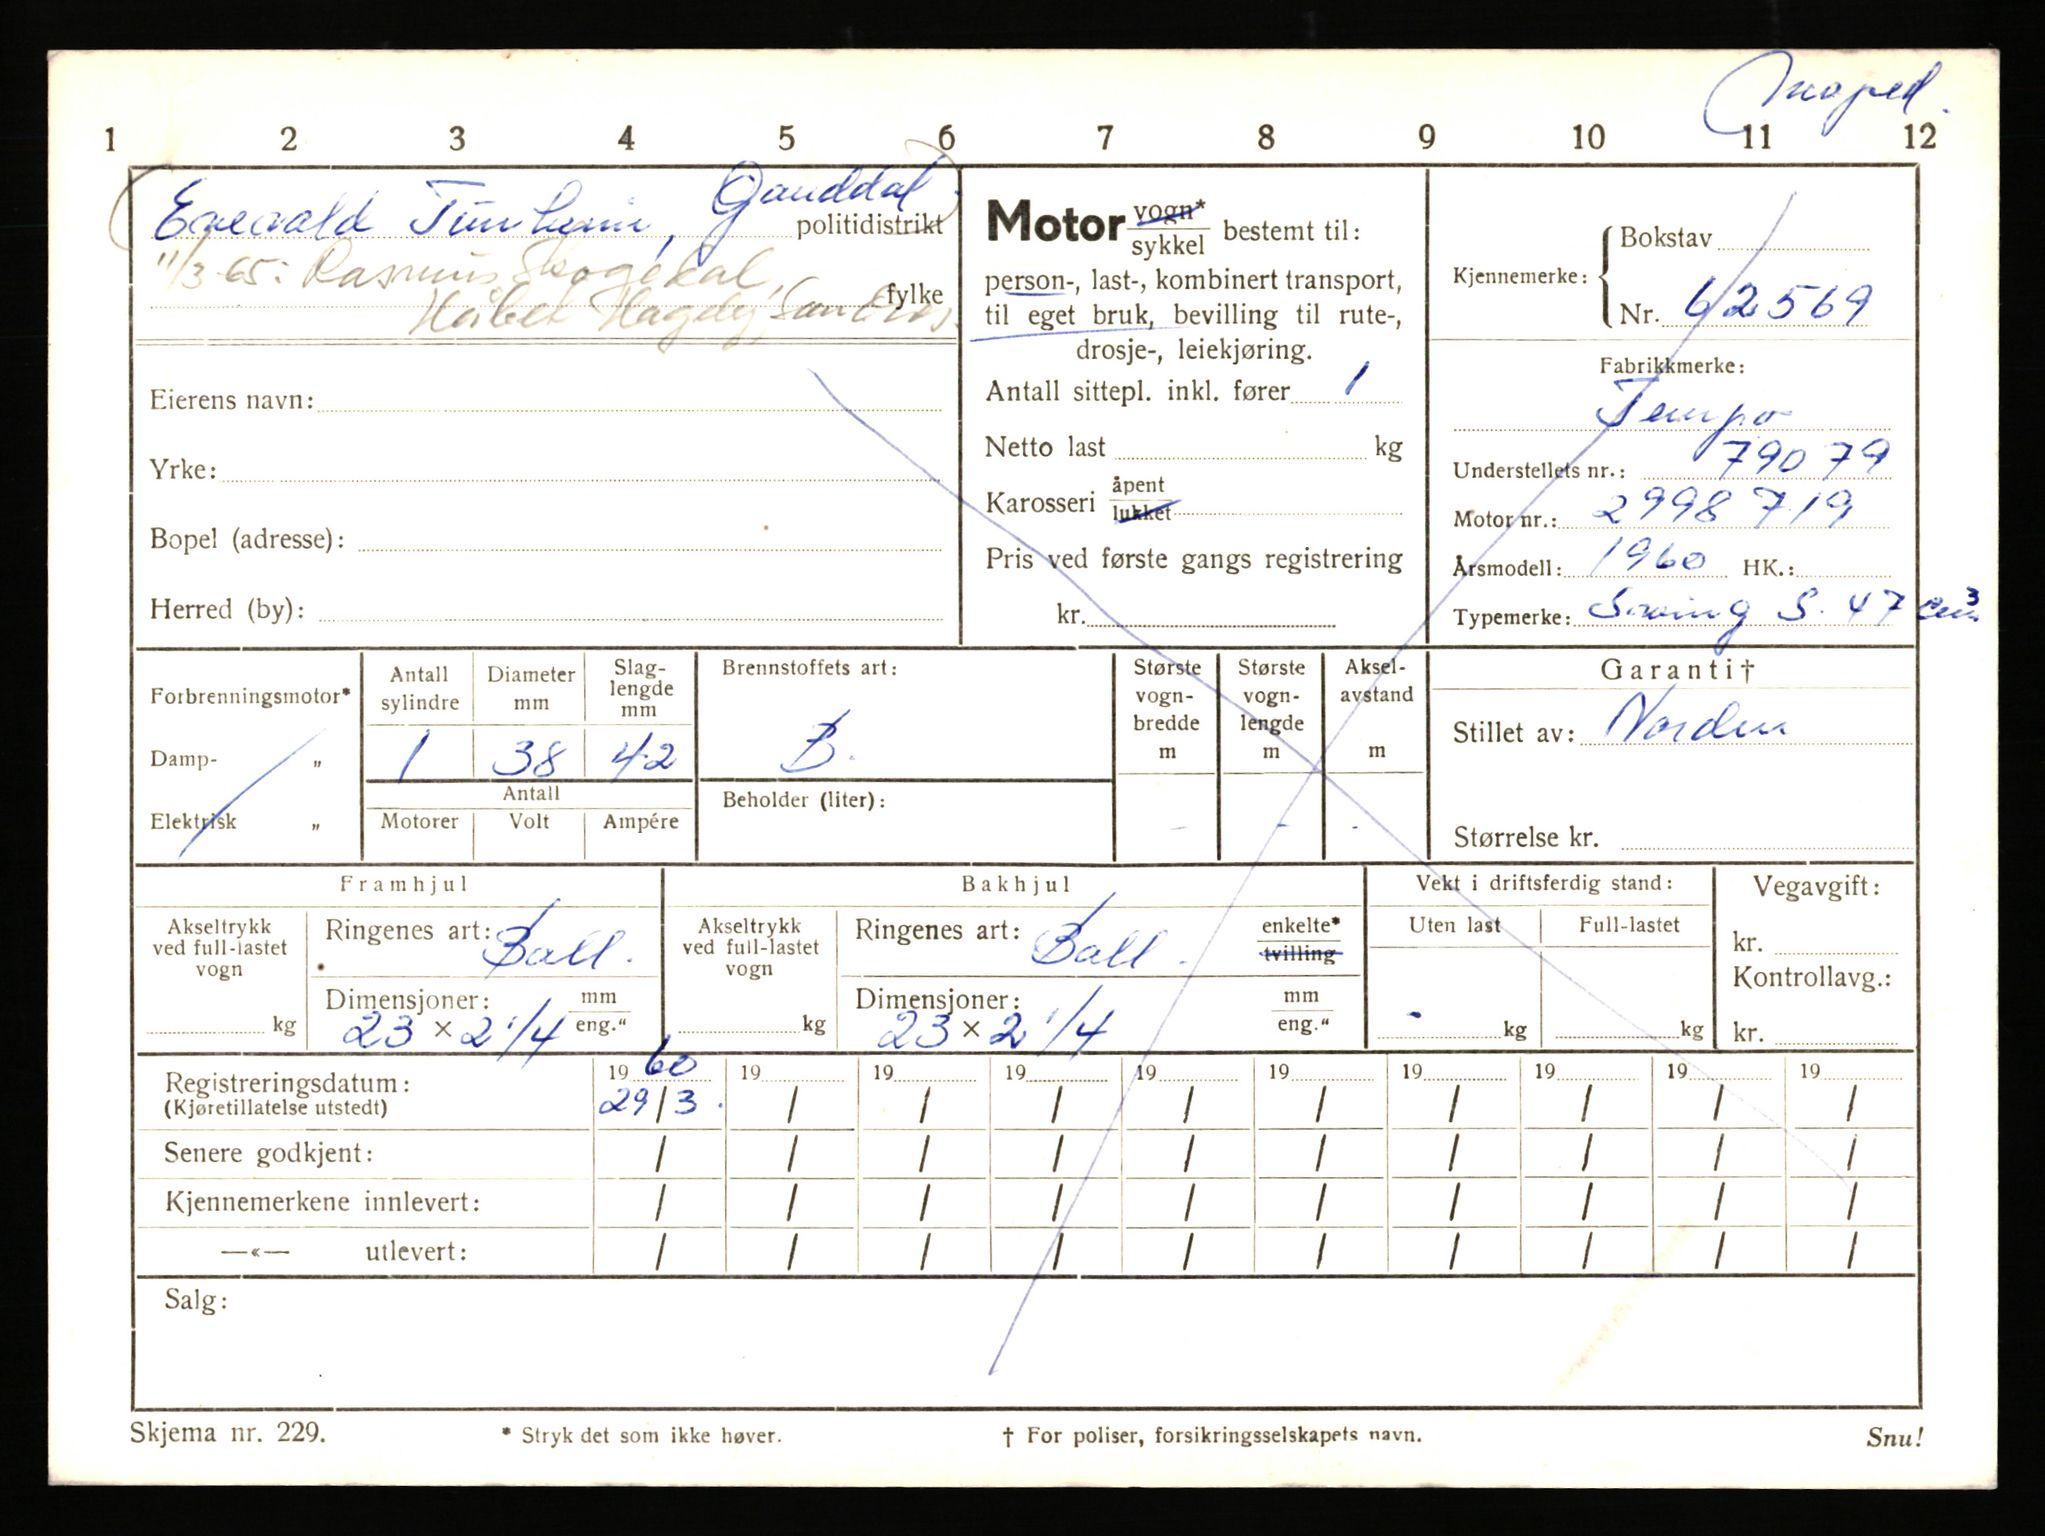 Moped.
1 2 3 4 5 6 7 8 9 10 11 12
Ganddal
politidistrikt
11/3-65: Rasmus Skogedal,
fylke
Eierens navn:
Yrke:
Bopel (adresse):
Herred (by):
Motor vogn*
sykkel bestemt til:
person-, last-, kombinert transport,
til eget bruk, bevilling til rute-,
drosje-, leiekjøring.
Antall sittepl. inkl. fører 1
Netto last kg
Karosseri åpent
lukket
Pris ved første gangs registrering
kr.
Kjennemerke: Bokstav
Nr. 62569
Fabrikkmerke:
Tempo
Understellets nr.: 79079
Motor nr.: 2998719
Årsmodell: 1960 HK.:
Typemerke: Swing S. 47 cm3
Forbrenningsmotor*
Damp- „
Elektrisk „
Antall sylindre Diameter mm Slaglengde mm
1 38 42
Antall
Motorer Volt Ampére
Brennstoffets art:
B.
Beholder (liter):
Største vognbredde m
Største vognlengde m
Akselavstand m
Garanti†
Stillet av: Norden
Størrelse kr.
Framhjul
Akseltrykk
ved full-lastet
vogn
kg
Ringenes art: Ball.
Dimensjoner: mm
23 × 2 1/4 eng."
Bakhjul
Akseltrykk
ved full-lastet
vogn
kg
Ringenes art: Ball. enkelte*
tvilling
Dimensjoner: mm
23 × 2 1/4 eng."
Vekt i driftsferdig stand:
Uten last Full-lastet
kg kg
Vegavgift:
kr.
Kontrollavg.:
kr.
Registreringsdatum: 1960 19 19 19 19 19 19 19 19 19
(Kjøretillatelse utstedt) 29/3. / / / / / / / / /
Senere godkjent: / / / / / / / / / /
Kjennemerkene innlevert: / / / / / / / / / /
—«— utlevert: / / / / / / / / / /
Salg:
Skjema nr. 229. * Stryk det som ikke høver. † For poliser, forsikringsselskapets navn. Snu!